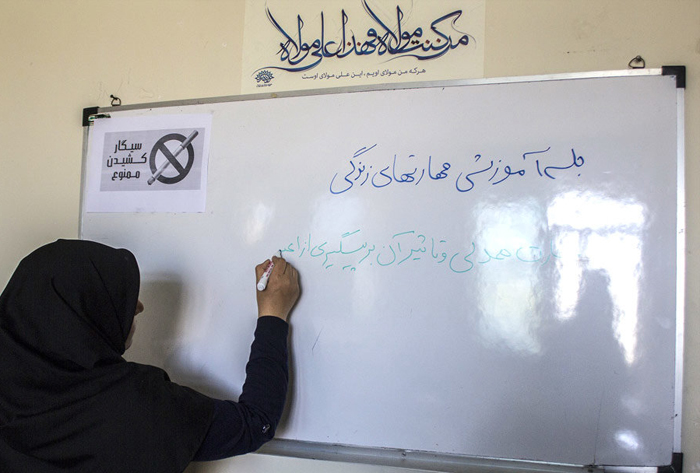 من كنت مولاه فهذا علي مولاه
هرکه من مولای اویم ، این علی مولای اوست
سیگار
کشیدن
ممنوع
جلسه آموزشی مهارتهای زندگی
همدلی و تاثیر آن بر پیشگیری از اعتیـ